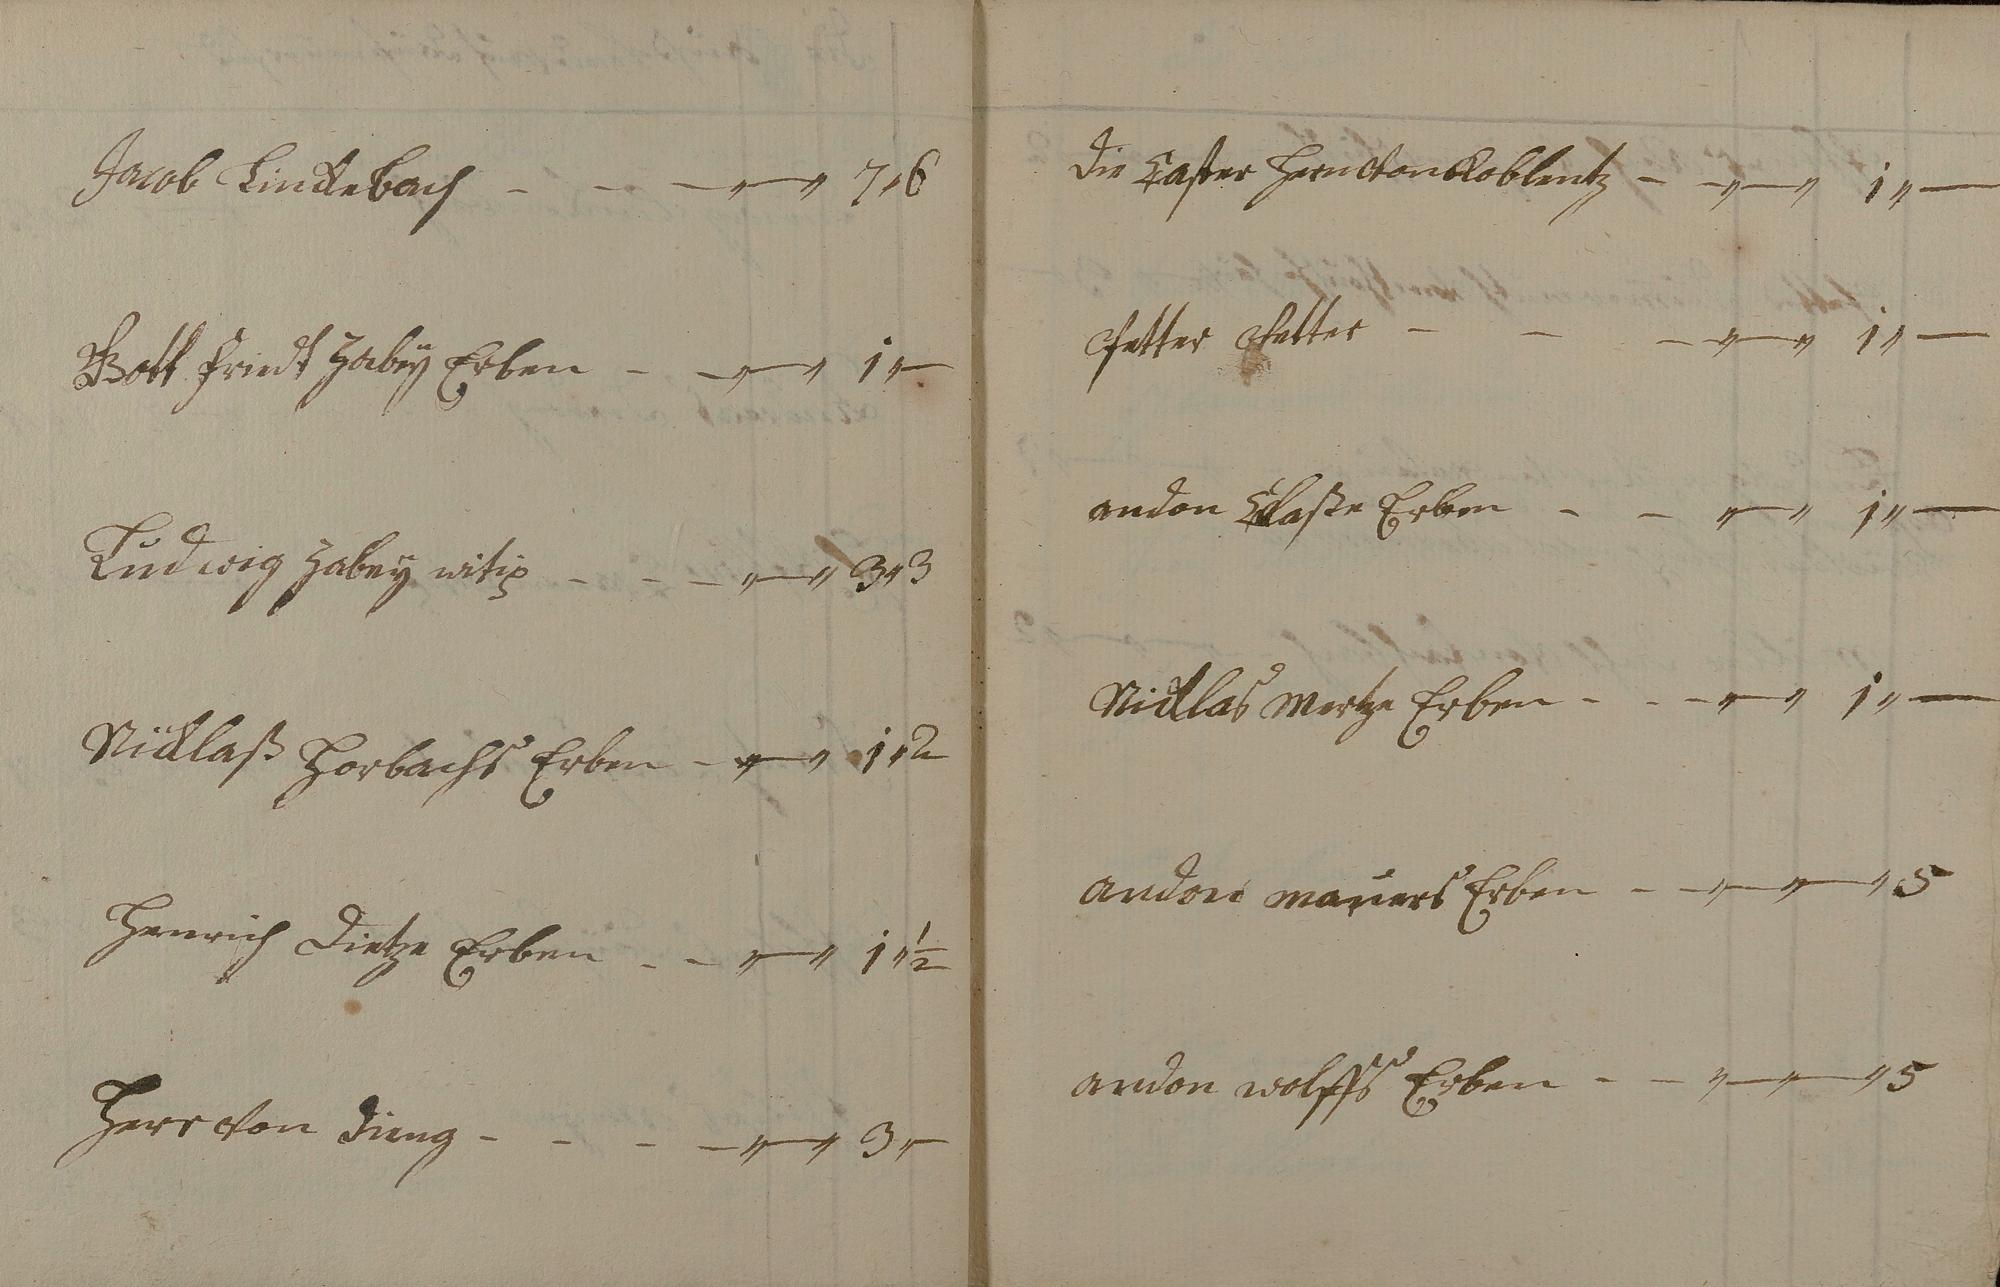 Jacob Linckebach - - - „ — „ 7 „ 6
Gott friedt Habey Erben - - „ — „ 1 „ —
Ludwig Habey witip - - - „ — „ 3 „ 3
Nicklaß Horbachs Erben - „ — „ 1 „ 2
Henrich Dietze Erben - - „ — „ 1 „ ½
Herr von Dieng - - - - „ — „ 3 „ —
die Caster Hern von Coblentz - - „ — „ 1 „ —
Petter Petter - - - „ — „ 1 „ —
andon Claße Erben - - „ — „ 1 „ —
Nicklas Mertze Erben - - - „ — „ 1 „ —
andon mauers Erben - - „ — „ — „ 5
andon wolffs Erben - - „ — „ — „ 5